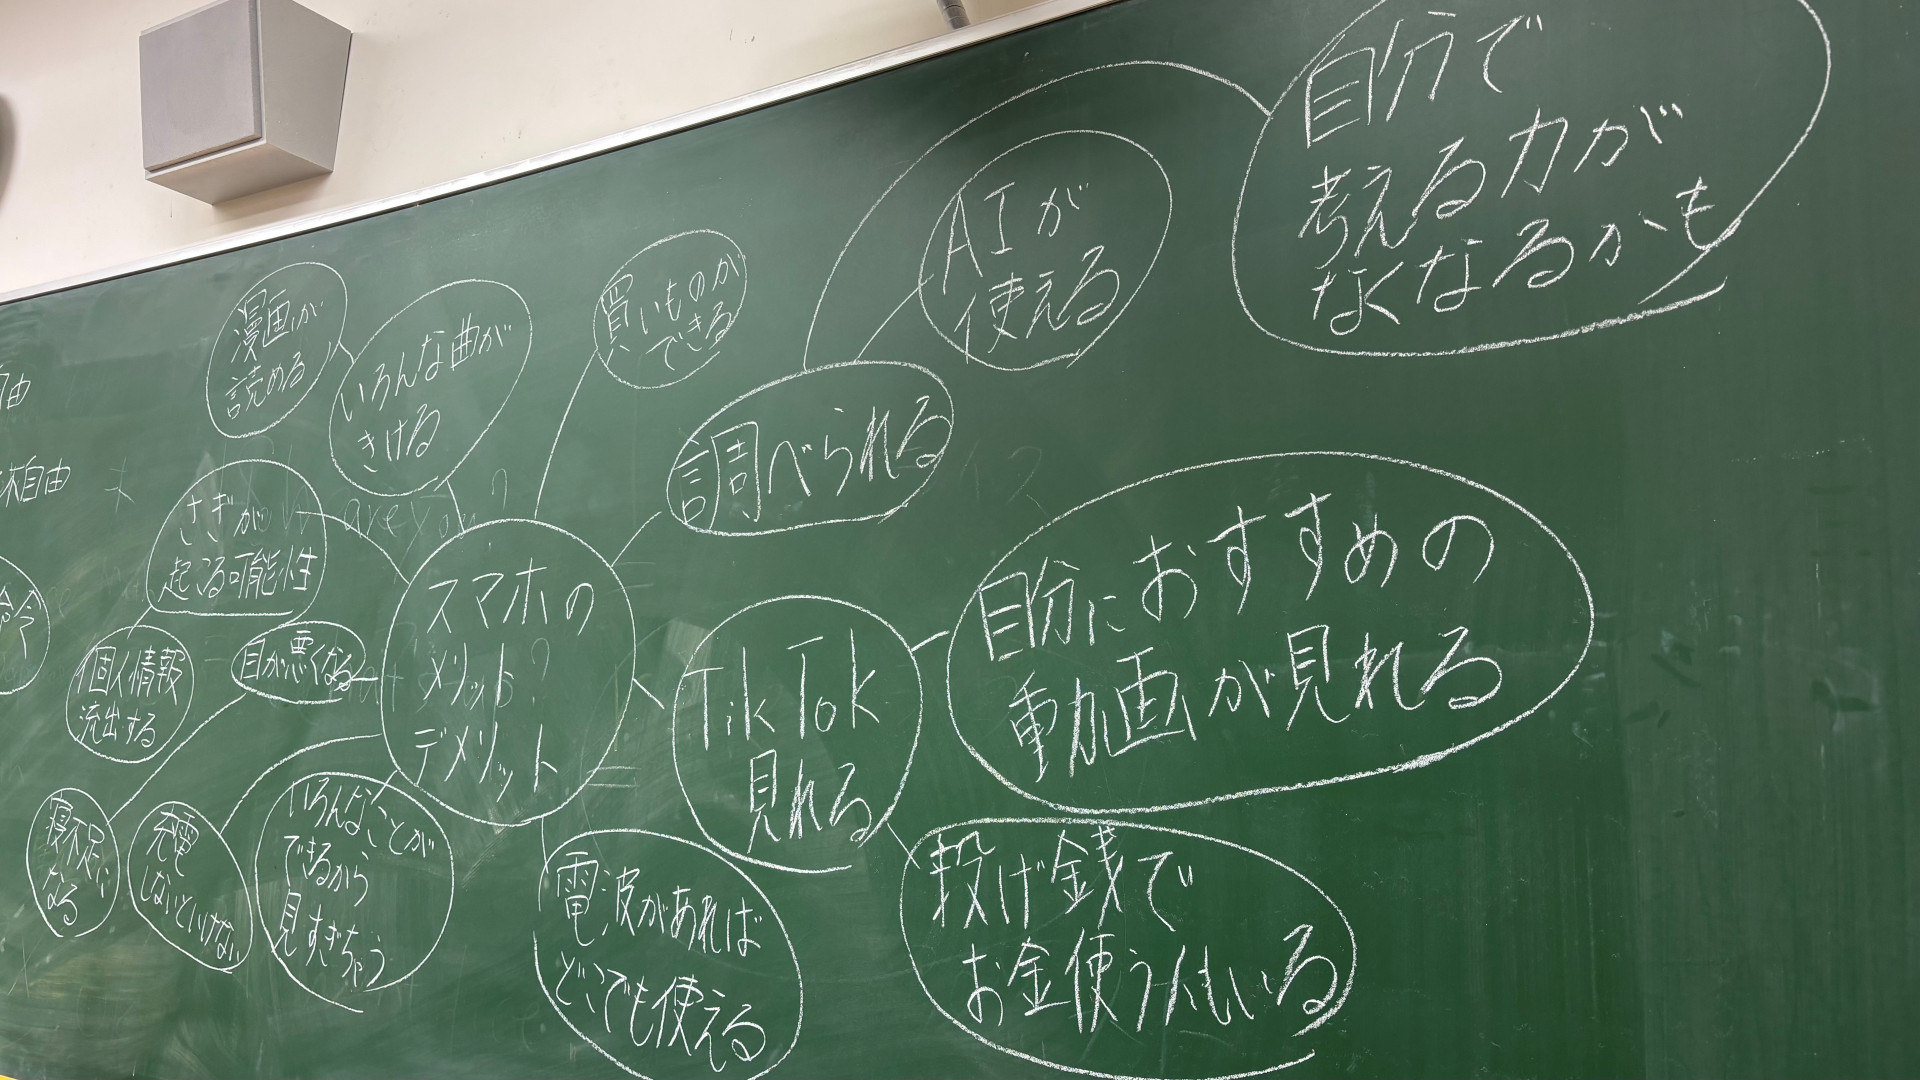 自分で
考える力が
なくなるかも
AIが
使える
買いものが
できる
漫画が
読める
いろんな曲が
きける
調べられる
不自由
さぎが
起こる可能性
自分におすすめの
動画が見れる
スマホの
メリット
デメリット
目が悪くなる
個人情報
流出する
TikTok
見れる
寝不足に
なる
充電
しないといけない
いろんなことが
できるから
見すぎちゃう
電波があれば
どこでも使える
投げ銭で
お金使う人もいる